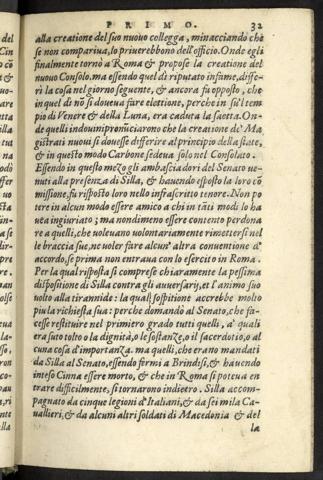 PRIMO. 32
alla creatione del suo nuovo collega, minacciando che
se non compariua, lo priuerebbono dell'officio. Onde egli
finalmente tornò a Roma & propose la creatione del
nuouo Consolo. ma essendo quel dì riputato infame, diffe‐
rì la cosa nel giorno seguente, & ancora fu opposto, che
in quel dì nõ si doueua fare elettione, perche in sul tem
pio di Venere & della Luna, era caduta la saetta. On‐
de quelli indouini pronũciarono che la creatione de' Ma
gistrati nuoui si douesse differire al principio della state,
& in questo modo Carbone sedeua solo nel Consolato.
Essendo in questo mezo gli ambasciadori del Senato ue‐
nuti alla presenza di Silla, & hauendo esposto la loro cõ
missione, fu risposto loro nello infrascritto tenore. Non po
tere in alcun modo essere amico a chi in tãti modi lo ha
uea ingiuriato; ma nondimeno essere contento perdona
re a quelli, che voleuano volontariamente rimettersi nel
le braccia sue, ne voler fare alcun' altra conuentione d'
accordo, se prima non entraua con lo esercito in Roma.
Per la qual risposta si comprese chiaramente la pessima
dispositione di Silla contra gli auuersarij, et l'animo suo
volto alla tirannide: la qual sospitione accrebbe molto
piu la richiesta sua: perche domandò al Senato, che fa‐
cesse restituire nel primiero grado tutti quelli, a' quali
era suto tolto o la dignità, o le sostanze, o il sacerdotio, o al
cuna cosa d'importanza. ma quelli, che erano mandati
da Silla al Senato, essendo fermi a Brindisi, & hauendo
inteso Cinna essere morto, & che in Roma si poteua en
trare difficilmente, si tornarono indietro. Silla accom‐
pagnato da cinque legioni d'Italiani, & da sei mila Ca‐
uallieri, & da alcuni altri soldati di Macedonia & del
la